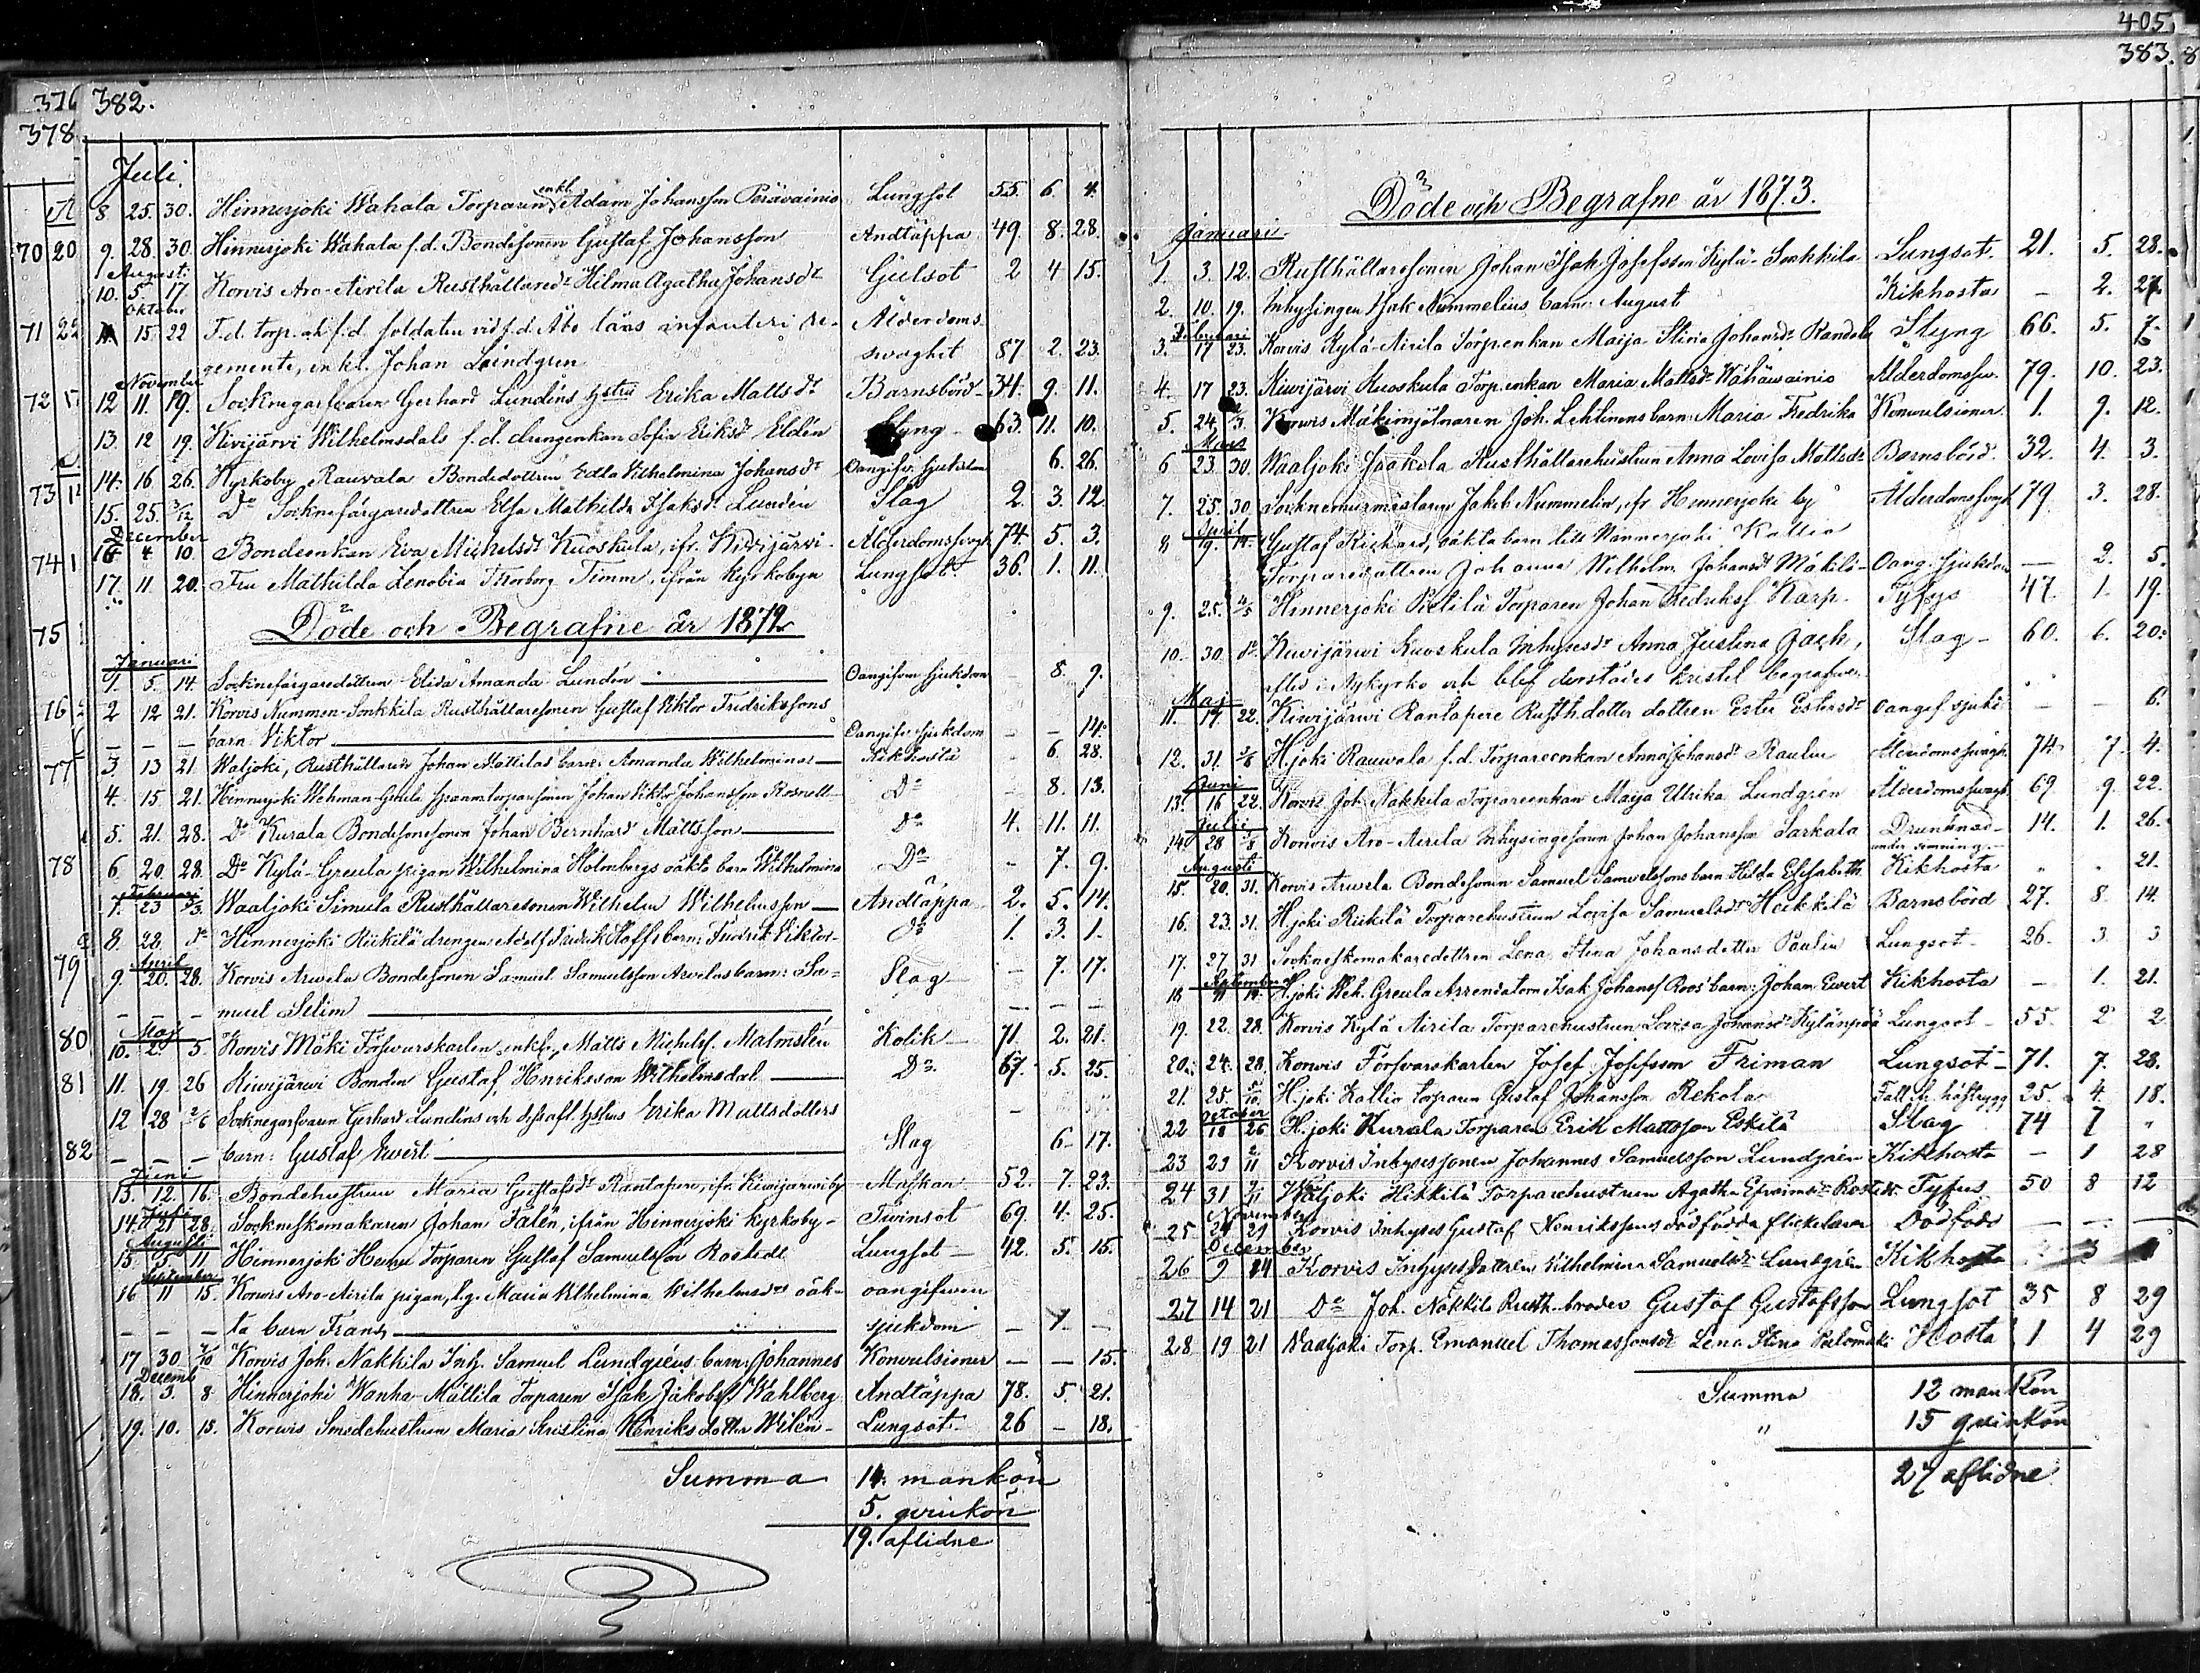 376 382.
378
Juli.
8 25. 30. Hinnerjoki Wahala Torparen enkl. Adam Johansson Perävainio Lungsot 55. 6. 4.
70 20 9. 28. 30. Hinnerjoki Wahala f.d. Bondesonen Gustaf Johansson Andtäppa 49. 8. 28.
Augusti
10. 5 17. Korvis Aro-Airila Rusthållaredr Hilma Agatha Johansdr Gulsot 2 4 15.
Oktober
71 15 22 F.d. torp. och f.d. soldaten vid f.d. Åbo läns infanteri re- Ålderdoms-
gemente, enkl. Johan Lindgren svaghet 87 2. 23.
November
72 12 11. 19. Socknegarfvaren Gerhard Lundéns hstru Erika Mattsdr Barnsbörd 34. 9. 11.
13. 12 19. Kivijärvi Wilhelmsdals f.d. drengenkan Sofia Eriksdr Eldén Styng 63. 11. 10.
73 14. 16 26. Kyrkoby Rauvala Bondedottren Edla Wilhelmina Johansdr Oangifv. sjukdom 6. 26.
15. 25. 3/12 Do Socknefärgaredottren Elsa Mathilda Isaksdr Lundén Slag 2. 3. 12
December
74 1 16 4 10. Bondeenkan Eva Michelsdr Kuoskula, ifr. Kivijärvi Ålderdomssvagh. 74. 5. 3.
17. 11 20. Fru Mathilda Zenobia Thorborg Timm, ifrån Kyrkobyn Lungsot 36. 1. 11.
75 Döde och Begrafne år 1872
Januari
1. 5. 14. Socknefärgaredottren Elida Amanda Lundén Oangifven sjukdom - 8. 9.
76 2 12 21. Korvis Nummen-Sonkkila Rusthållaresonen Gustaf Viktor Fredrikssons
barn Viktor Oangifv. sjukdom - - 14.
77 3. 13 21 Waljoki, Rusthållaren Johan Mattilas barn: Amanda Wilhelmina Kikhosta - 6. 28.
4. 15 21. Hinnerjoki Wehman-Greula torparesonen Johan Viktor Johansson Rosnell Do - 8. 13.
5. 21. 28. Do Kurala Bondesonesonen Johan Bernhard Mattsson Do 4. 11. 11.
78 6 20. 28. Do Kylä-Greula pigan Wilhelmina Holmbergs oäkta barn Wilhelmina Do - 7. 9.
Februari
7. 23 3/3. Waaljoki Simula Rusthållaresonen Wilhelm Wilhelmsson Andtäppa 2. 5. 14.
8. 22. do Hinnerjoki Rickilä drengen Adolf Fredrik Hoffs barn: Fredrik Viktor do 1. 3. 1.
79 April
9. 20. 28. Korvis Arwela Bondesonen Samuel Samuelsson Arvelas barn: Sa= Slag - 7. 17.
muel Selim
80 Maj
10. 2. 5. Korvis Mäki Försvarskarlen enkl. Matts Michelss. Malmstén Kolik 71. 2. 21.
81 11. 19. 26 Kiwijärwi Bonden Gustaf Henriksson Wilhelmsdal Do 67. 5. 25.
12 28 2/6 Socknegarfvaren Gerhard Lundéns och dess afl. hstrus Erika Mattsdotters
82 barn: Gustaf Ewert Slag 6 17.
Juni
13. 12. 16. Bondehustrun Maria Gustafsdr Rantapere, ifr. Kiwijärwi by Maskar 52. 7. 23.
Juli
14. 21 28. Sockneskomakaren Johan Falén, ifrån Hinnerjoki kyrkoby Twinsot 69. 4. 25.
Augusti
15. 5. 11. Hinnerjoki Hemu Torparen Gustaf Samuelsson Rostedt Lungsot 42. 5. 15.
September
16 11 15. Korvis Aro-Airila pigan, l.g. Maria Wilhelmina Wilhelmsdrs oäk- oangifwen
ta barn Frans sjukdom - 7 -
17 30 7/10 Korvis Joh. Nakkila Inh. Samuel Lundgréns barn: Johannes Konvulsioner - - 15.
Decemb
18. 3. 8 Hinnerjoki Wanha-Mattila Torparen Isak Jakobss. Wahlberg Andtäppa 78. 5. 21.
19. 10. 15. Korvis Smedehustrun Maria Kristina Henriksdotter Wilén Lungsot 26 - 18.
Summa 14. mankön
5. qvinkön
19. aflidne
405.
383.
Döde och Begrafne år 1873.
Januari
1. 3. 12. Rusthållaresonen Johan Isak Josefsson Kylä-Sonkkila Lungsot. 21. 5. 28.
2. 10. 19. Inhysingen Isak Nummelins barn: August Kikhosta - 2. 27.
Februari
3. 17 23. Korvis Kylä-Airila Torp.enkan Maija Stina Johansdr Randala Styng 66. 5. 7.
4. 17 23. Kiwijärvi Kuoskula Torp.enkan Maria Mattsdr Wähäwainio Ålderdomssv. 79. 10. 23.
5. 24 2/3. Korwis Mäkimjölnaren Joh. Lehtinens barn: Maria Fredrika Konvulsioner. 1. 9. 12.
Mars
6 23. 30. Waaljoki Jaakola Rusthållarehustrun Anna Lovisa Mattsdr Barnsbörd. 32. 4. 3.
7. 25. 30. Socknemurmästaren Jakob Nummelin, ifr. Hinnerjoki by Ålderdomssvagh. 79. 3. 28.
April
8 9. 14. Gustaf Richard, oäkta barn till Hinnerjoki Kallio
Torparedottren Johanna Wilhelm. Johansdr Mäkilä Oang. sjukdom — 2. 5.
9. 25. 4/5 Hinnerjoki Pietilä Torparen Johan Fredrikss. Karp. Tyfus 47. 1. 19.
10. 30. do Kiwijärwi Kuoskula Inhysesdr Anna Justina Jack, Slag 60. 6. 20.
afled i Nykyrko och blef derstädes kristel. begrafven
Maj
11. 14 22. Kiwijärwi Rantapere Rusth.dotter dottren Ester Estersdr Oangef sjukd. - - 6.
12. 31. 2/6 Hjoki Rauwala f.d. Torpareenkan Anna Johansdr Raulin Ålderdomssvagh. 74. 7. 4.
Juni
13. 16 22. Korvis Joh. Nakkila Torpareenkan Maija Ulrika Lundgrén Ålderdomssvagh. 69 9. 22.
Juli
14 28 Korvis Aro-Airila Inhysingesonen Johan Johansson Sarkala Drunknad 14. 1. 26.
under simning.
Augusti
15. 20. 31. Korvis Arwela Bondesonen Samuel Samuelssons barn Hilda Elisabeth Kikhosta " " 21.
16. 23. 31. Hjoki Rickilä Torparehustrun Lovisa Samuelsdr Heikkilä Barnsbörd 27. 8. 14.
17. 27 31 Sockneskomakaredottren Lena Stina Johansdotter Paulin Lungsot 26. 3. 3
September
18 11 14. Hjoki Weh. Greula Arrendatorn Isak Johanss Roos' barn: Johan Ewert Kikhosta - 1. 21.
19. 22. 28. Korvis Kylä Airila Torparehustrun Lovisa Johansdr Kylänpää Lungsot 55. 2 2
20. 24. 28. Korvis Försvarskarlen Josef Josefsson Friman Lungsot 71. 7. 28.
21. 25. 5/10. H.joki Kallio Torparen Gustaf Johansson Rekola Fall fr. hästrygg 25. 4. 18.
October
22 18 26 H.joki Kurala Torparen Erik Mattsson Eskilä Slag 74 7 "
23 23 2/11 Korvis Inhysessonen Johannes Samuelsson Lundgrén Kikhosta - 1 28
24 31 2/11 Waljoki Hikkilä Torparehustrun Agatha Efraimsdr Rostedt Tyfus 50 8 12
November
25 29 Korvis Inhyses Gustaf Henrikssons dödfödda flickebarn Dödfödd — — —
December
26 9 14 Korvis Inhysesdottren Wilhelmina Samuelsdr Lundgrén Kikhosta - 3
27 14 21 Do Joh. Nakkila Rusth.broder Gustaf Gustafsson Lungsot 35 8 29
28 19 21 Waaljoki Torp. Emanuel Thomassonsdr Lena Stina Palomäki Hosta 1 4 29
Summa 12 mankön
" 15 qvinkön
27 aflidne